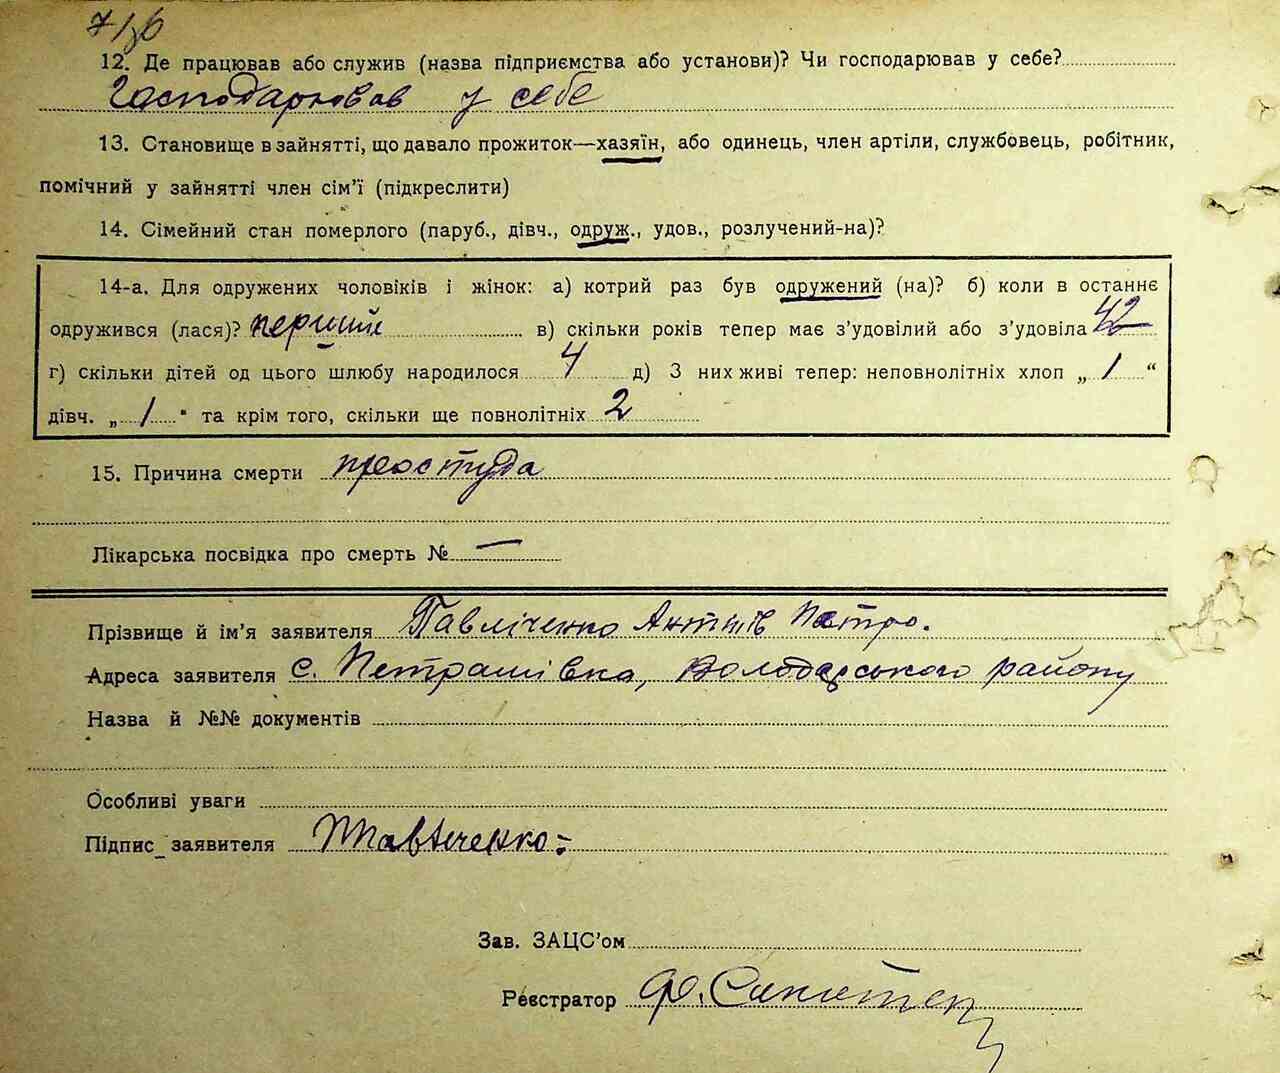 12. Де працював або служив (назва підприємства або установи)? Чи господарював у себе?
Господарював у себе
13. Становище в зайнятті, що давало прожиток—хазяїн, або одинець, член артіли, службовець, робітник,
помічний у зайнятті член сім'ї (підкреслити)
14. Сімейний стан померлого (паруб., дівч., одруж., удов., розлучений-на)?
14-а. Для одружених чоловіків і жінок: а) котрий раз був одружений (на)? б) коли в останнє
одружився (лася)? перший в) скільки років тепер має з'удовілий або з'удовіла 42
г) скільки дітей од цього шлюбу народилося 4 д) З них живі тепер: неповнолітніх хлоп „ 1 “
дівч. „ 1 " та крім того, скільки ще повнолітніх 2
15. Причина смерти простуда
Лікарська посвідка про смерть № —
Прізвище й ім'я заявителя Павліченко Петро.
Адреса заявителя с. Петрашівка, Володарського району
Назва й №№ документів
Особливі уваги
Підпис заявителя Павліченко
Зав. ЗАЦС'ом
Реєстратор Ф.